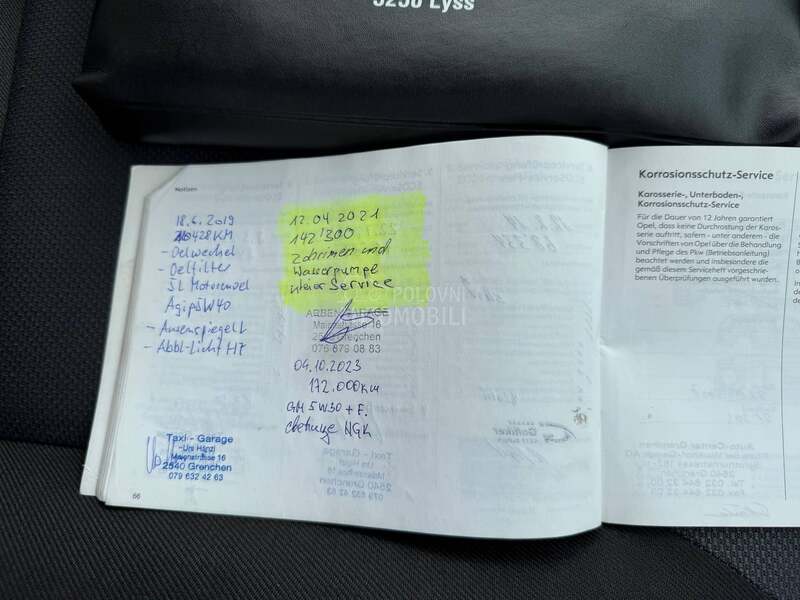 3250 Lyss
Notizen
18.6.2019
428KM
- Oelwechel
- Oelfilter
5L Motorenoel
Agip 5W40
- Aussenspiegel L
- Abbl-Licht H7
Taxi - Garage
Urs Hänzi
Maienstrasse 16
2540 Grenchen
079 632 42 63
66
12.04 2021
142'300
Zahnriemen und
Wasserpumpe
kleiner Service
ARBEN GARAGE
Maienstrasse 16
2540 Grenchen
076 679 08 83
04.10.2023
172.000km
GM 5W30 + F.
свећице NGK
POLOVNI
AUTOMOBILI
Korrosionsschutz-Service
Karosserie-, Unterboden-,
Korrosionsschutz-Service
Für die Dauer von 12 Jahren garantiert
Opel, dass keine Durchrostung der Karos-
serie auftritt, sofern - unter anderem - die
Vorschriften von Opel über die Behandlung
und Pflege des Pkw (Betriebsanleitung)
beachtet werden und insbesondere die
gemäß diesem Serviceheft vorgeschrie-
benen Überprüfungen ausgeführt wurden.